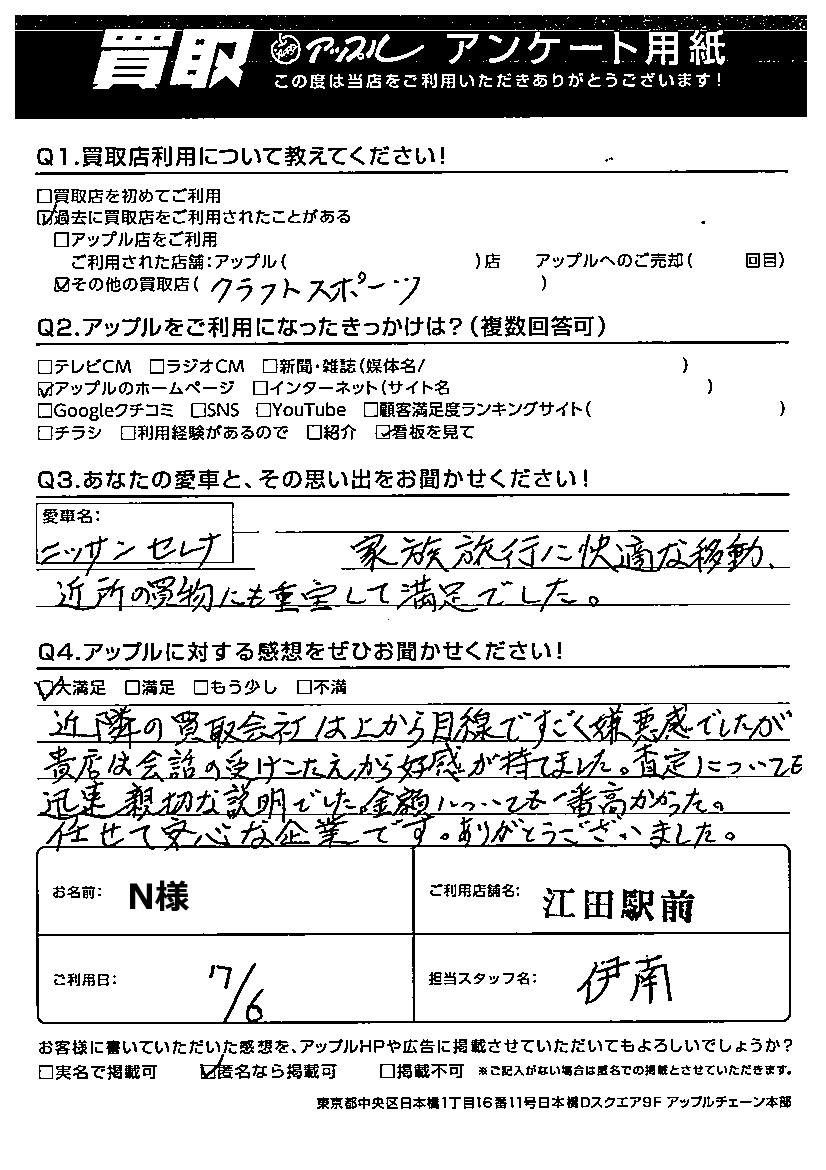 買取 アップル アンケート用紙
この度は当店をご利用いただきありがとうございます!
Q1.買取店利用について教えてください!
□買取店を初めてご利用
☑過去に買取店をご利用されたことがある
□アップル店をご利用
ご利用された店舗:アップル( )店 アップルへのご売却( 回目)
☑その他の買取店( クラフトスポーツ )
Q2.アップルをご利用になったきっかけは?(複数回答可)
□テレビCM □ラジオCM □新聞・雑誌(媒体名/ )
☑アップルのホームページ □インターネット(サイト名 )
□Googleクチコミ □SNS □YouTube □顧客満足度ランキングサイト( )
□チラシ □利用経験があるので □紹介 ☑看板を見て
Q3.あなたの愛車と、その思い出をお聞かせください!
愛車名:
ニッサン セレナ 家族旅行に快適な移動、
近所の買物にも重宝して満足でした。
Q4.アップルに対する感想をぜひお聞かせください!
☑大満足 □満足 □もう少し □不満
近隣の買取会社は上から目線ですごく嫌悪感でしたが
貴店は会話の受けこたえから好感が持てました。査定についても
迅速親切な説明でした。金額についても一番高かった。
任せて安心な企業です。ありがとうございました。
お名前: N様 ご利用店舗名: 江田駅前
ご利用日: 7/6 担当スタッフ名: 伊南
お客様に書いていただいた感想を、アップルHPや広告に掲載させていただいてもよろしいでしょうか?
□実名で掲載可 ☑匿名なら掲載可 □掲載不可 ※ご記入がない場合は匿名での掲載とさせていただきます。
東京都中央区日本橋1丁目16番11号日本橋Dスクエア9F アップルチェーン本部